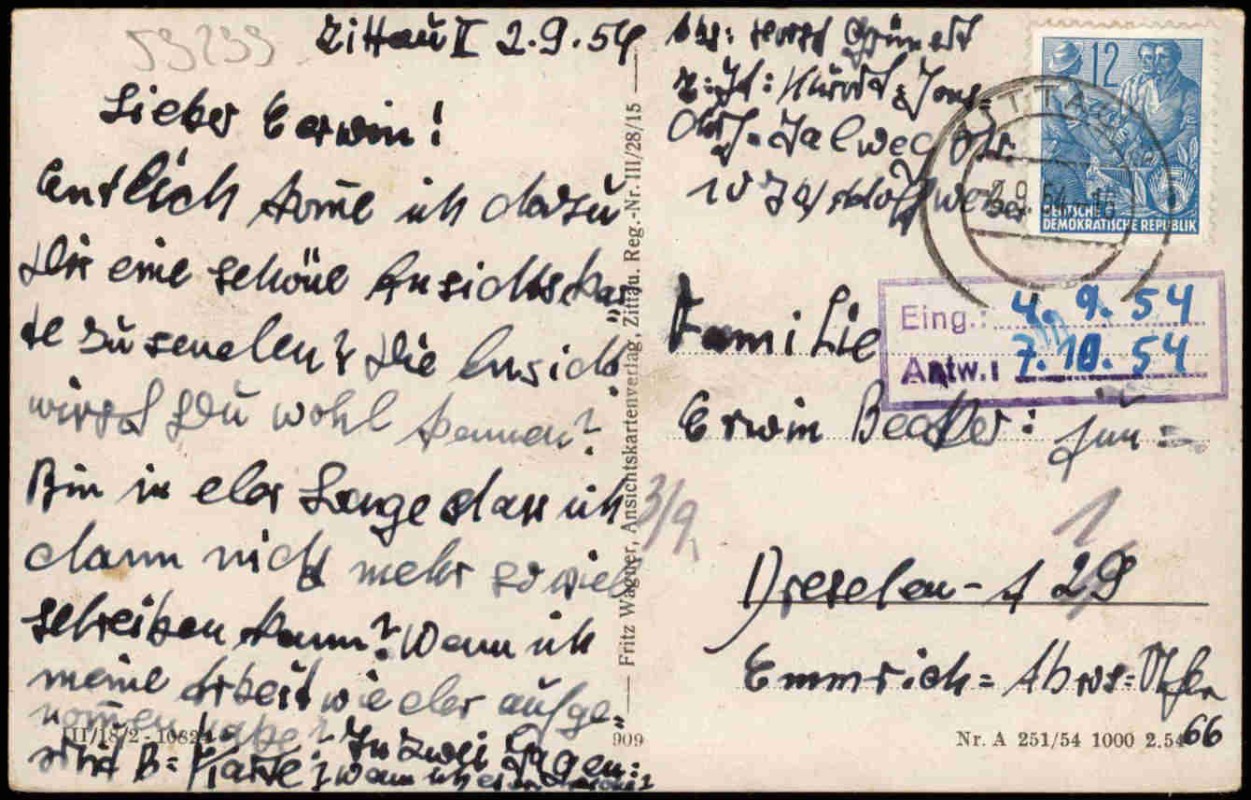 59233
Zittau II 2.9.54
Lieber Eerwin!
Entlich kome ich dazu
Dir eine schöne Ansichtskar
te zu senden? Die Ansicht
wirst Du wohl kennen?
Bin in der Lage dass ich
dann nicht mehr so viel
schreiben kann? Wenn ich
meine Arbeit wieder aufge-
nommen habe?
B= Karte; In zwei Tagen:
wenn ich
Fritz Wagner, Ansichtskartenverlag, Zittau. Reg.-Nr. III/28/15
III/18/2 - 1082
909
Abs: Horst Grünert
z: Zt:
Talweg Str.
12
DEUTSCHE
DEMOKRATISCHE REPUBLIK
ZITTAU
2.9.54-16
Eing.: 4. 9. 54
Antw.: 7. 10. 54
Familie
Erwin Becker: jun =
3/9.
1
Dresden - A 29
Emmrich = Ahws = Ufer
66
Nr. A 251/54 1000 2.54